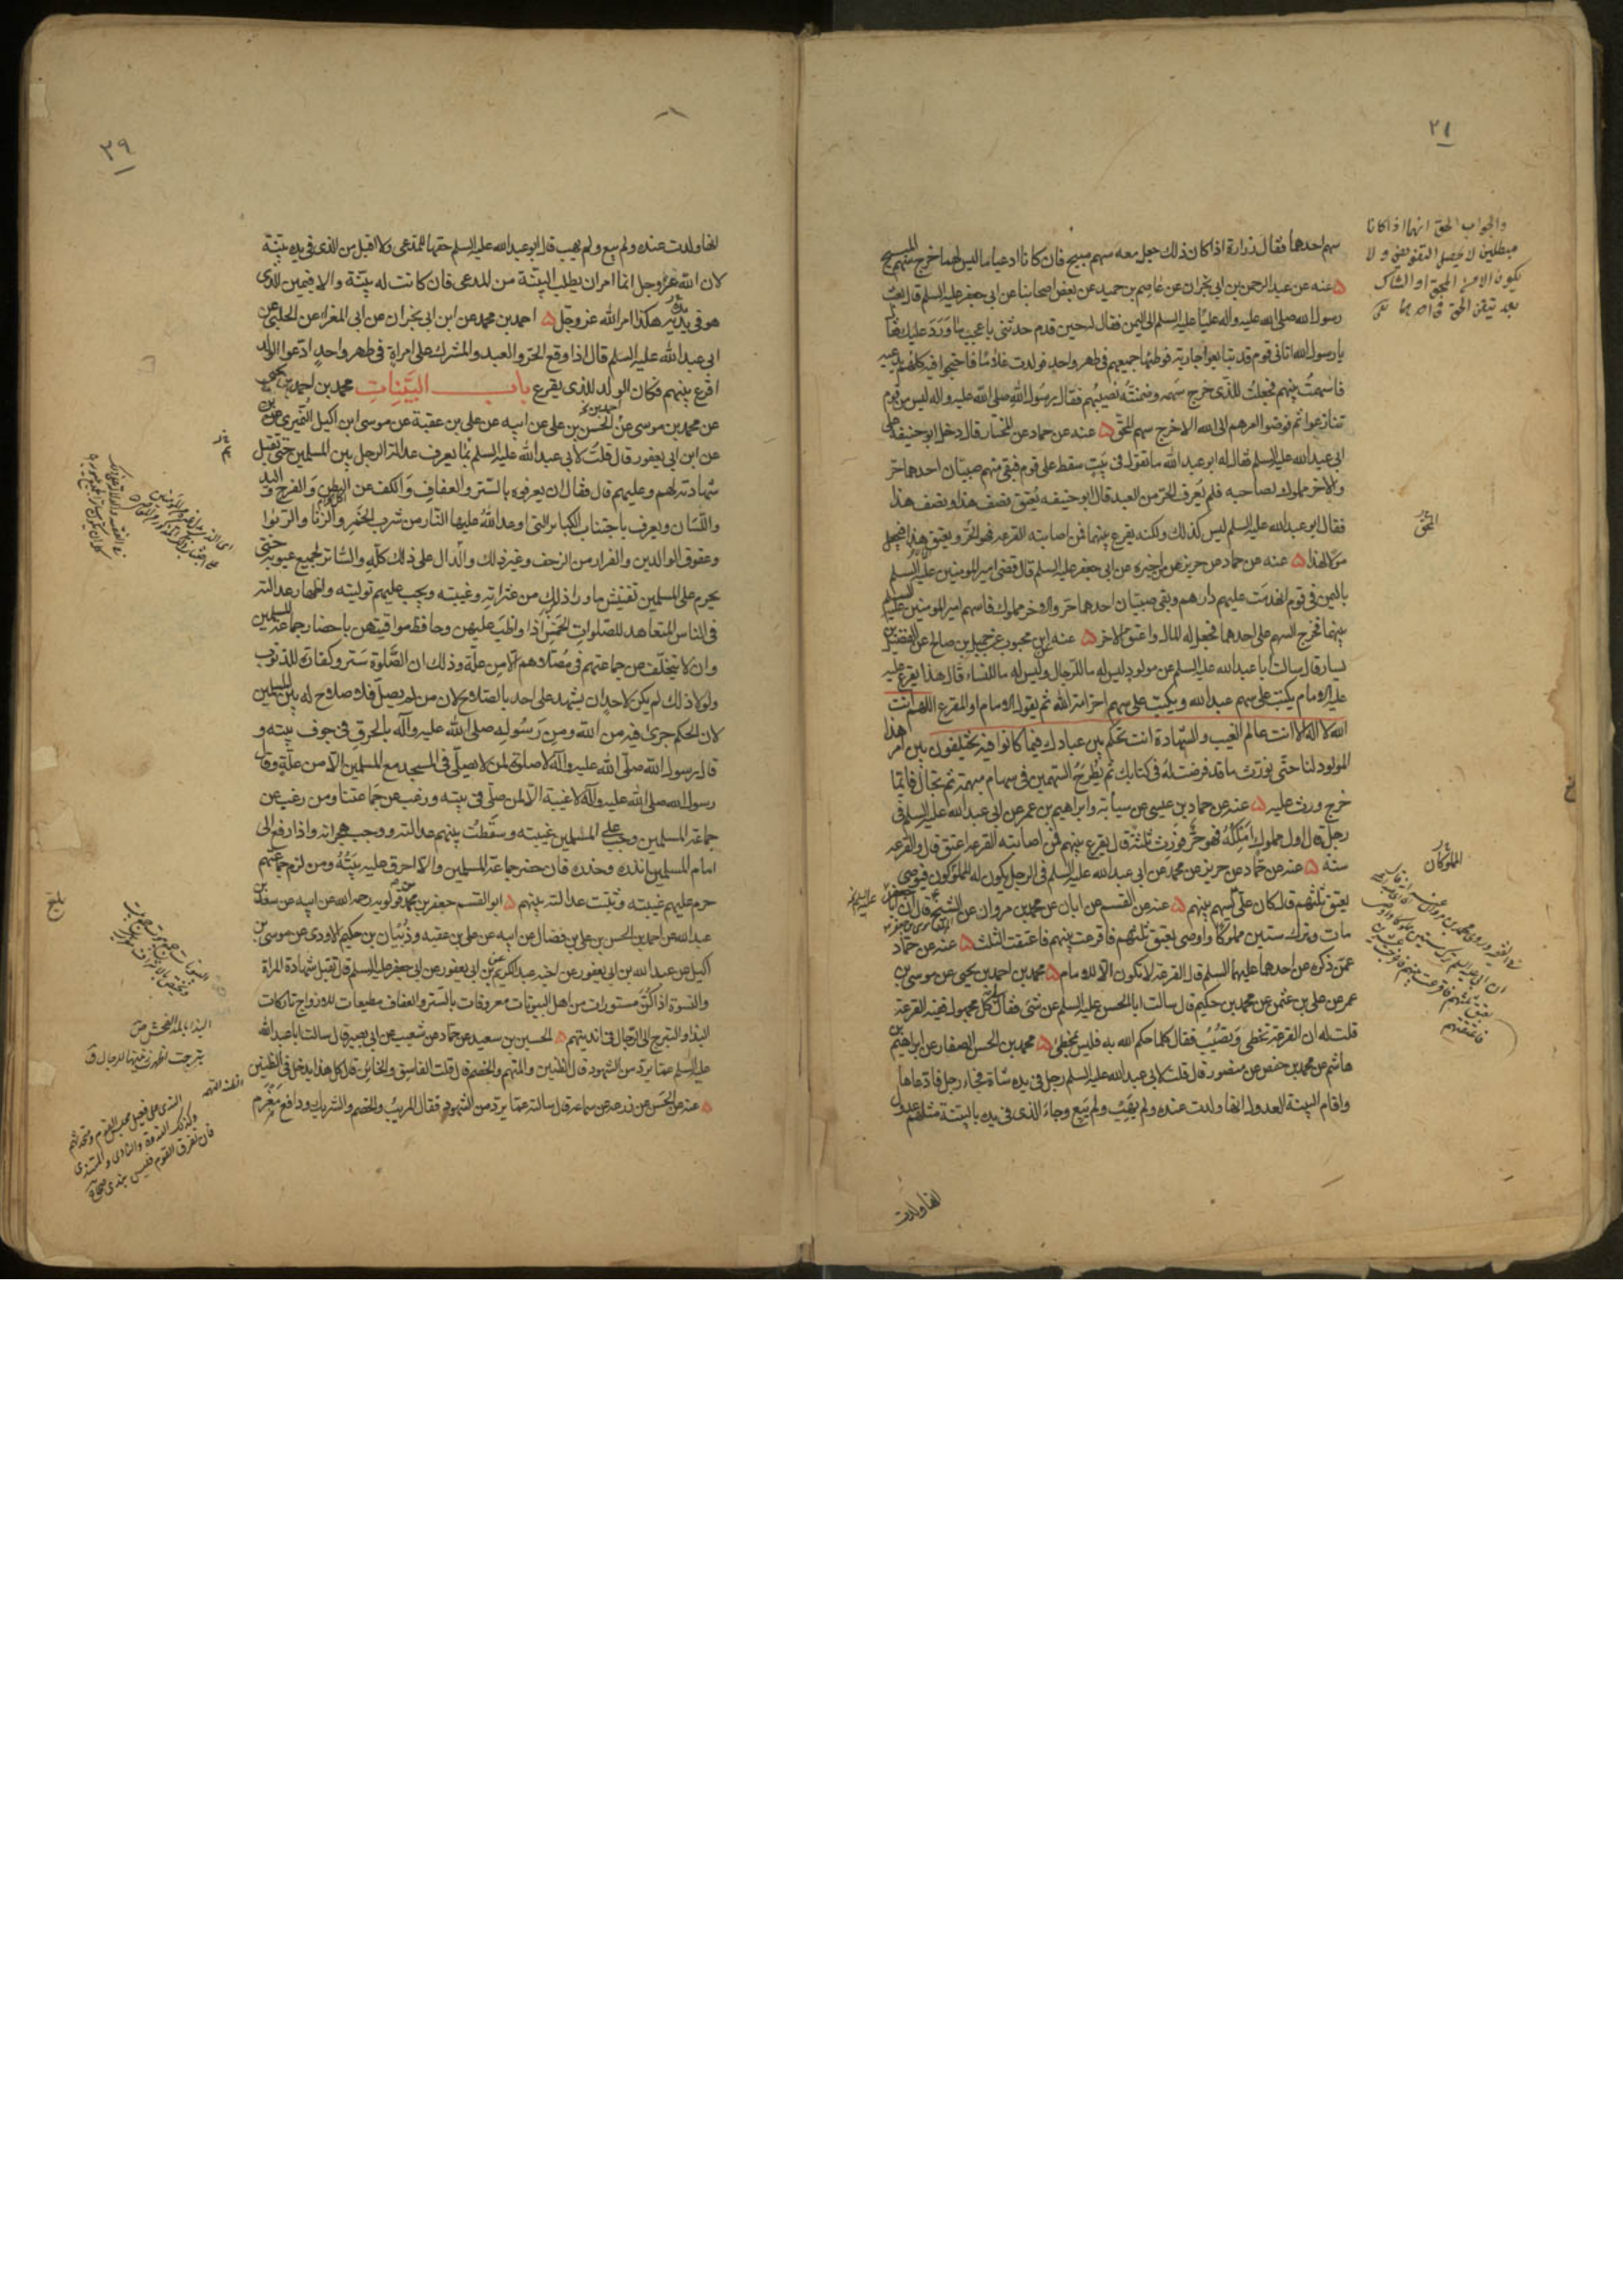 ٢١
سهم احدهما فقال زرارة اذا كان ذلك جعل معه سهم مبيح فان كانا ادعيا ما ليس لهما خرج سهم المبيح
عنه عن عبد الرحمن بن ابى نجران عن عاصم بن حميد عن بعض اصحابنا عن ابى جعفر عليه السلم قال بعث
رسول الله صلى الله عليه واله عليا عليه السلم الى اليمن فقال له حين قدم حدثنى باعجب ما ورد عليك فقال
يا رسول الله اتانى قوم قد تبايعوا جارية فوطئها جميعهم فى طهر واحد فولدت غلاما فاحتجوا فيه كلهم يدعيه
فاسهمت بينهم فجعلت للذى خرج سهمه وضمنته نصيبهم فقال رسول الله صلى الله عليه واله ليس من قوم
تنازعوا ثم فوضوا امرهم الى الله الا خرج سهم المحق عنه عن حماد عن المختار قال دخل ابو حنيفة على
ابى عبد الله عليه السلم فقال له ابو عبد الله ما تقول فى بيت سقط على قوم فبقى منهم صبيان احدهما حر
والاخر مملوك لصاحبه فلم يعرف الحر من العبد قال ابو حنيفه يعتق نصف هذا ونصف هذا
فقال ابو عبد الله عليه السلم ليس كذلك ولكنه يقرع بينهما فمن اصابته القرعه فهو الحر ويعتق هذا فيجعل
مولا لهذا عنه عن حماد عن حريز عمن اخبره عن ابى جعفر عليه السلم قال قضى امير المومنين عليه السلم
باليمن فى قوم انهدمت عليهم دارهم وبقى صبيان احدهما حر والاخر مملوك فاسهم امير المومنين عليه السلم
بينهما فخرج السهم على احدهما فجعل له المال واعتق الاخر عنه عن ابن محبوب عن جميل بن صالح عن الفضيل بن
يسار قال سالت ابا عبد الله عليه السلم عن مولود ليس له ما للرجال وليس له ما للنساء قال هذا يقرع عليه
عليه الامام يكتب على سهم عبد الله ويكتب على سهم اخر امة الله ثم يقول الامام او المقرع اللهم انت
الله لا اله الا انت عالم الغيب والشهادة انت تحكم بين عبادك فيما كانوا فيه يختلفون بين امر هذا
المولود لنا حتى نورث ما قد فرضت له فى كتابك ثم يطرح السهمين فى سهام مبهمة ثم تجال فايما
خرج ورث عليه عنه عن حماد بن عيسى عن سيابة وابراهيم بن عمر عن ابى عبد الله عليه السلم فى
رجل قال اول مملوك املكه فهو حر فورث ثلثة قال يقرع بينهم فمن اصابته القرعه اعتق قال والقرعه
سنة عنه عن حماد عن حريز عن محمد عن ابى عبد الله عليه السلم فى الرجل يكون له المملوكون فيوصى
بعتق ثلثهم قال كان على يسهم بينهم عنه عن القسم عن ابان عن محمد بن مروان عن الشيخ قال ان ابا جعفر
مات وترك ستين مملوكا واوصى بعتق ثلثهم فاقرعت بينهم فاعتقت الثلث عنه عن حماد
عمن ذكره عن احدهما عليهما السلم قال القرعة لا تكون الا للامام محمد بن احمد بن يحيى عن موسى بن
عمر عن على بن عثمن عن محمد بن حكيم قال سالت ابا الحسن عليه السلم عن شئ فقال لى كل مجهول ففيه القرعة
قلت له ان القرعة تخطى وتصيب فقال كلما حكم الله به فليس بمخطئ محمد بن الحسن الصفار عن ابراهيم بن
هاشم عن محمد بن حفص عن منصور قال قلت لابى عبد الله عليه السلم رجل فى يده شاة فجاء رجل فادعاها
واقام البينة العدول انها ولدت عنده ولم يهب ولم يبع وجاء الذى فى يده بالبينة مثلهم عدول
انها ولدت
والجواب الحق انهما اذا كانا
مبطلين لا يحصل التفويض ولا
يكون الامر المحق او الشاك
بعد تيقن الحق فى احدهما
المحق
المملوكان
٢٩
انها ولدت عنده ولم يبع ولم يهب قال ابو عبد الله عليه السلم حقها للمدعى ولا اقبل من الذى فى يده بينة
لان الله عز وجل انما امر ان يطلب البينة من المدعى فان كانت له بينة والا فيمين الذى
هو فى يده هكذا امر الله عز وجل احمد بن محمد عن ابن ابى نجران عن ابى المغرا عن الحلبى عن
ابى عبد الله عليه السلم قال اذا وقع الحر والعبد والمشرك على امراة فى طهر واحد ادعوا الولد
اقرع بينهم فكان الولد للذى يقرع باب البينات محمد بن احمد بن يحيى
عن محمد بن موسى عن الحسن بن على عن ابيه عن على بن عقبة عن موسى ابن اكيل النميرى
عن ابن ابى يعفور قال قلت لابى عبد الله عليه السلم بما يعرف عدالة الرجل بين المسلمين حتى تقبل
شهادته لهم وعليهم قال فقال ان يعرفوه بالستر والعفاف والكف عن البطن والفرج واليد
واللسان ويعرف باجتناب الكبائر التى اوعد الله عليها النار من شرب الخمر والزنا والربوا
وعقوق الوالدين والفرار من الزحف وغير ذلك والدال على ذلك كله والساتر لجميع عيوبه حتى
يحرم على المسلمين تفتيش ما وراء ذلك من عثراته وغيبته ويجب عليهم توليته واظهار عدالته
فى الناس المتعاهد للصلوات الخمس اذا واظب عليهن وحافظ مواقيتهن باحضار جماعة المسلمين
وان لا يتخلف عن جماعتهم فى مصلاهم الا من علة وذلك ان الصلوة ستر وكفارة للذنوب
ولولا ذلك لم يكن لاحد ان يشهد على احد بالصلاح لان من لم يصل فلا صلاح له بين المسلمين
لان الحكم جرى فيه من الله ومن رسوله صلى الله عليه وآله بالحرق فى جوف بيته و
قال رسول الله صلى الله عليه وآله لا صلوة لمن لا يصلى فى المسجد مع المسلمين الا من علة وقال
رسول الله صلى الله عليه وآله لا غيبة الا لمن صلى فى بيته ورغب عن جماعتنا ومن رغب عن
جماعة المسلمين وجب على المسلمين غيبته وسقطت بينهم عدالته ووجب هجرانه واذا رفع الى
امام المسلمين انذره وحذره فان حضر جماعة المسلمين والا احرق عليه بيته ومن لزم جماعتهم
حرم عليهم غيبته وثبتت عدالته بينهم ابو القسم جعفر بن محمد بن قولويه رحمه الله عن ابيه عن سعد بن
عبد الله عن احمد بن الحسن بن على بن فضال عن ابيه عن على بن عقبه وذبيان بن حكيم الاودى عن موسى بن
اكيل عن عبد الله بن ابى يعفور عن اخيه عبد الكريم بن ابى يعفور عن ابى جعفر عليه السلم قال تقبل شهادة المراة
والنسوة اذا كن مستورات من اهل البيوتات معروفات بالستر والعفاف مطيعات للازواج تاركات
البذا والتبرج الى الرجال فى انديتهم الحسين بن سعيد عن حماد عن شعيب عن ابى بصير قال سالت ابا عبد الله
عليه السلم عما يرد من الشهود قال الظنين والمتهم والخصم قال قلت الفاسق والخائن قال كل هذا يدخل فى الظنين
عنه عن الحسن عن زرعه عن سماعه قال سالته عما يرد من الشهود فقال المريب والخصم والشريك ودافع مغرم
بلغ
البذا بالمد الفحش ص
تبرجت اظهرت زينتها للرجال ق
الندى على فعيل مجلس القوم ومتحدثهم
وكذلك الندوة والنادى والمنتدى
فان تفرق القوم فليس بندى صحاح